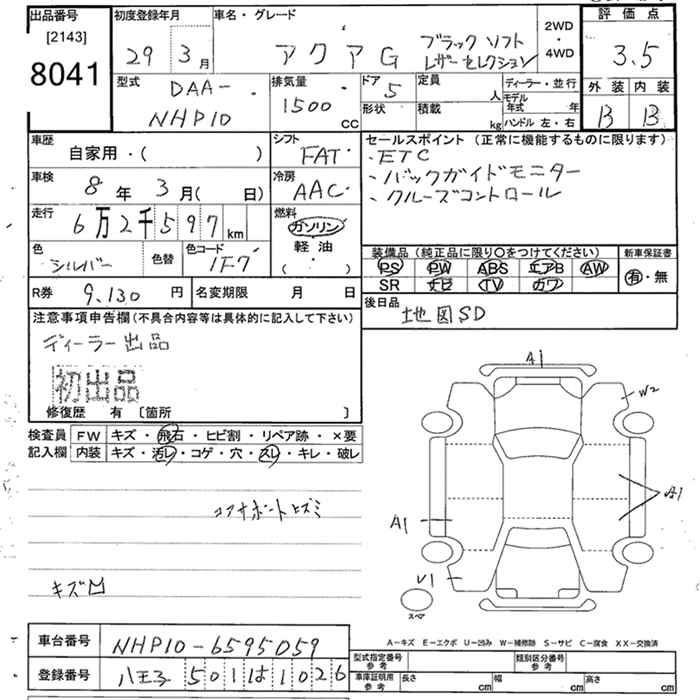 出品番号
[2143]
8041
初度登録年月
29年3月
車名・グレード
アクアG ブラックソフト
レザーセレクション
2WD
・
4WD
評価点
3.5
外装 内装
B B
型式
DAA-
NHP10
排気量
1500
cc
ドア
5
形状
定員
人
積載
kg
ディーラー・並行
モデル
年式 年
ハンドル 左・右
車歴
自家用・( )
シフト
FAT
セールスポイント (正常に機能するものに限ります)
・ETC
・バックガイドモニター
・クルーズコントロール
車検
8年3月( 日)
冷房
AAC
走行
6万2千597km
燃料
ガソリン
軽油
( ・ )
色
シルバー
色替
色コード
1F7
装備品 (純正品に限り○をつけてください)
PS PW ABS エアB AW
SR ナビ TV カワ
新車保証書
有・無
R券 9,130円
名変期限 月 日
後日品
地図SD
注意事項申告欄(不具合内容等は具体的に記入して下さい)
ディーラー出品
初出品
修復歴 有 [箇所 ]
検査員
記入欄
FW キズ・飛石・ヒビ割・リペア跡・×要
内装 キズ・汚レ・コゲ・穴・スレ・キレ・破レ
コアサポートヒズミ
キズ凹
A1
W2
A1
A1
U1
スペア
A-キズ E-エクボ U-凹み W-補修跡 S-サビ C-腐食 XX-交換済
車台番号 NHP10-6595059
登録番号 八王子 501は1026
型式指定番号
参考
類別区分番号
参考
車庫証明用
参考
長さ cm
幅 cm
高さ cm